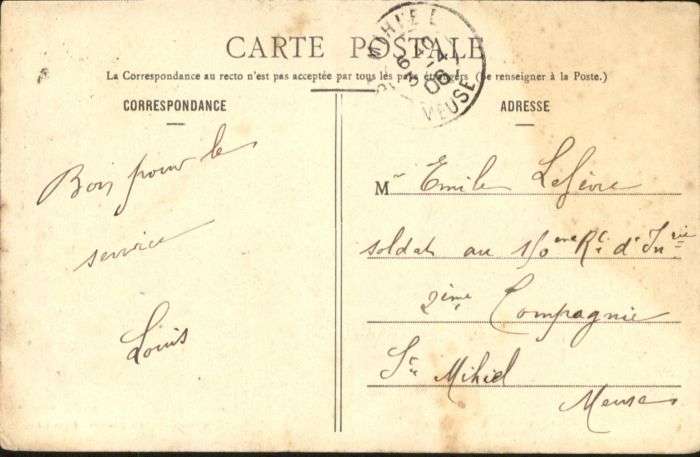 CARTE POSTALE
La Correspondance au recto n'est pas acceptée par tous les pays étrangers (Se renseigner à la Poste.)
CORRESPONDANCE
Bon pour le
service
Louis
ADRESSE
Mr Emile Lefèvre
soldat au ème Rt d'Inrie
2ème Compagnie
St Mihiel
Meuse
MIHIEL
06
MEUSE